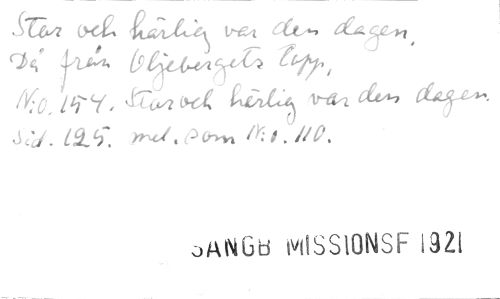 Stor och härlig var den dagen,
Då från Oljebergets topp,
N:o. 154. Stor och härlig var den dagen.
Sid. 125. mel. som N:o. 110.
SANGB MISSIONSF 1921